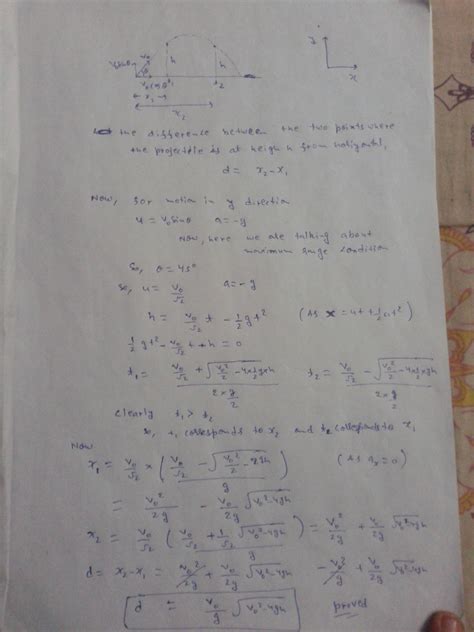 y
x
v₀
v₀sinθ
θ
v₀cosθ
h
h
t₂
x₁
x₂
the difference between the two points where
the projectile is at height h from horizontal,
d = x₂-x₁
Now, for motion in y direction
u = v₀sinθ a = -g
Now, here we are talking about
maximum range condition
So, θ = 45°
So, u = v₀/√2 a = -g
h = v₀/√2 t - 1/2 gt² (as x = ut + 1/2 at²)
1/2 gt² - v₀/√2 t + h = 0
t₁ = (v₀/√2 + √(v₀²/2 - 4×g/2×h))/(2×g/2) t₂ = (v₀/√2 - √(v₀²/2 - 4×g/2×h))/(2×g/2)
Clearly t₁ > t₂
So, t₁ corresponds to x₂ and t₂ corresponds to x₁
Now
x₁ = v₀/√2 × (v₀/√2 - √(v₀²/2 - 2gh))/g (as aₓ = 0)
= v₀²/2g - v₀/2g √(v₀²-4gh)
x₂ = v₀/√2 (v₀/√2 + 1/√2 √(v₀²-4gh))/g = v₀²/2g + v₀/2g √(v₀²-4gh)
d = x₂-x₁ = v₀²/2g + v₀/2g √(v₀²-4gh) - v₀²/2g + v₀/2g √(v₀²-4gh)
d = v₀/g √(v₀²-4gh) proved